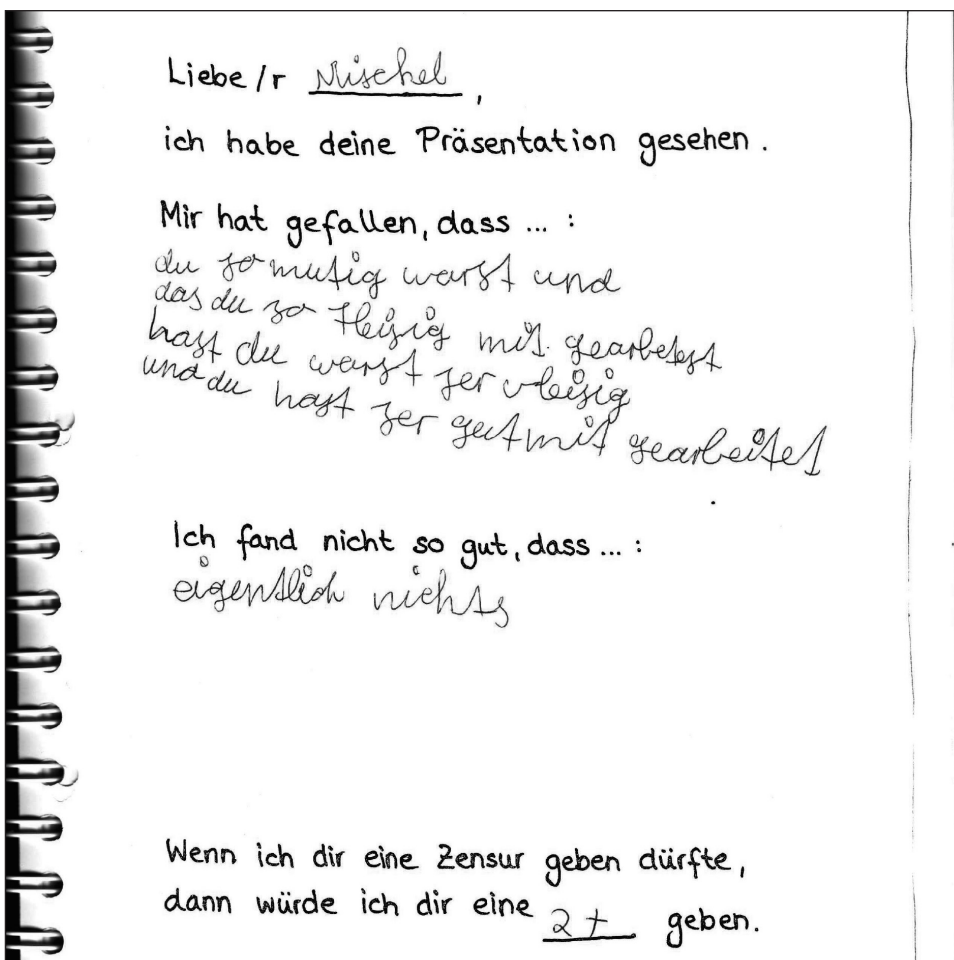 Liebe/r Mischel,
ich habe deine Präsentation gesehen.
Mir hat gefallen, dass ... :
du so mutig warst und
das du so fleisig mit gearbetest
hast du warst ser vleisig
und du hast ser gut mit gearbeitet
Ich fand nicht so gut, dass ... :
eigentlich nichts
Wenn ich dir eine Zensur geben dürfte,
dann würde ich dir eine 2+ geben.